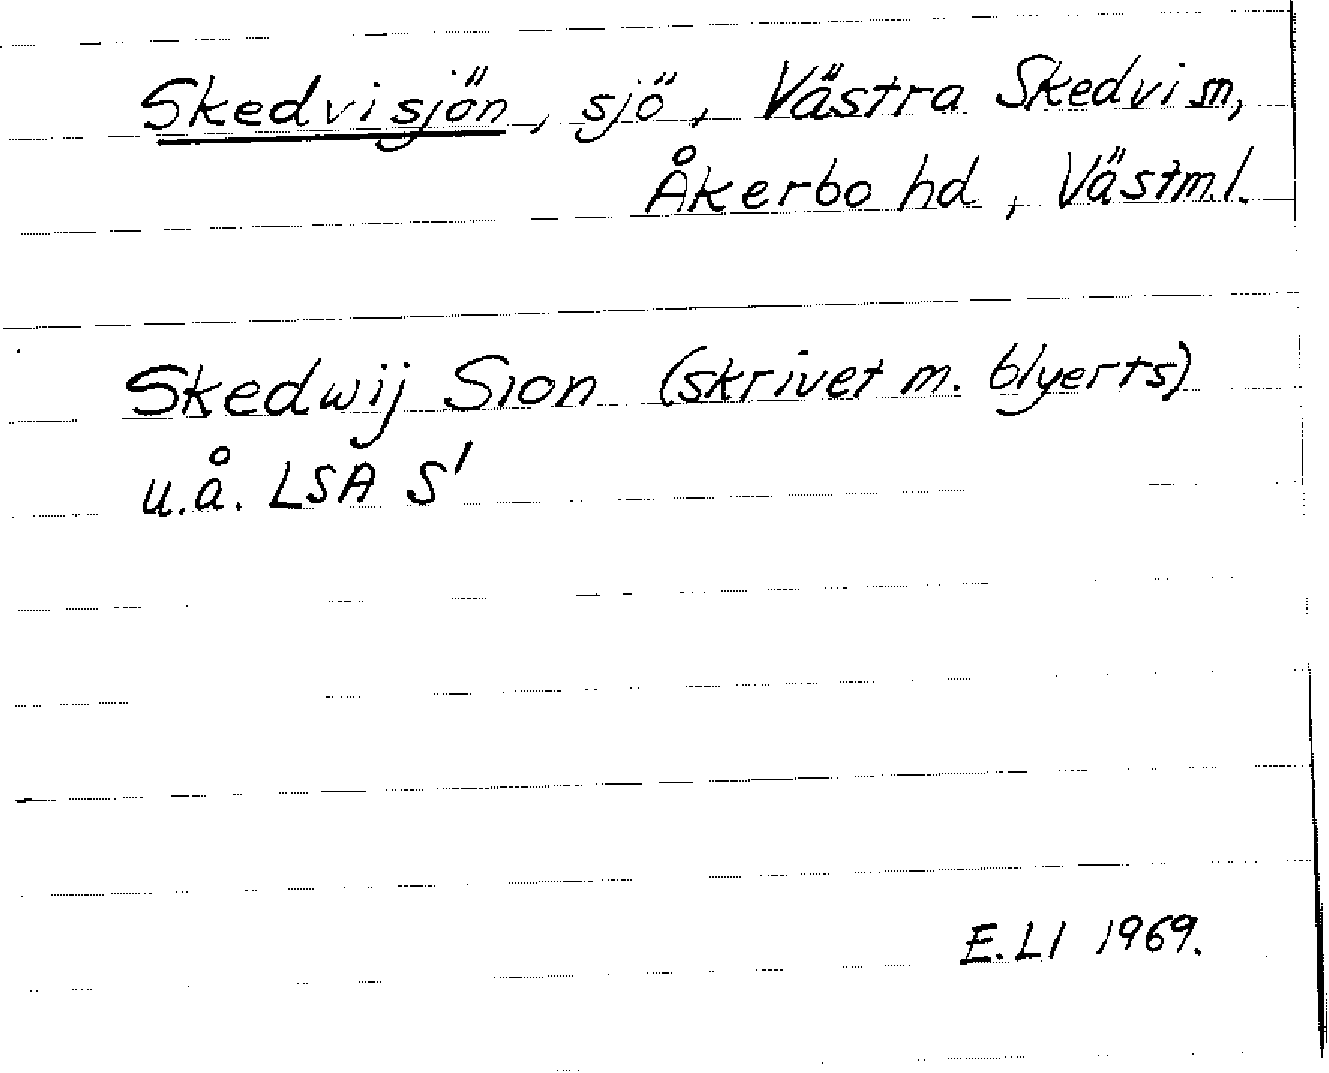 Skedvisjön, sjö, Västra Skedvi sn,
Åkerbo hd, Västm.l.
Skedwij Sion (skrivet m. blyerts)
u.å. LSA S1
E.LI 1969.